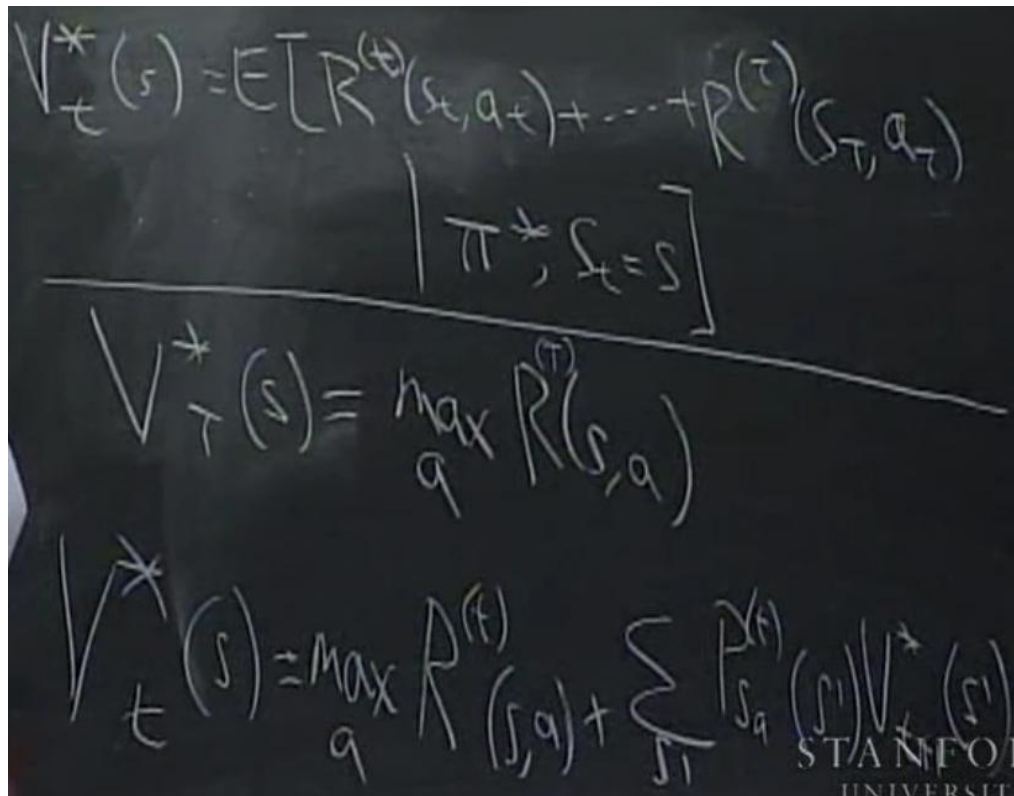 V*_t(s) = E[R^(t)(s_t, a_t) + ---- + R^(T)(s_T, a_T)
| π*, s_t = s]
V*_T(s) = max_a R^(T)(s, a)
V*_t(s) = max_a R^(t)(s, a) + Σ_s' P^(t)_sa(s') V*_t+1(s')
STANFO
UNIVERSIT